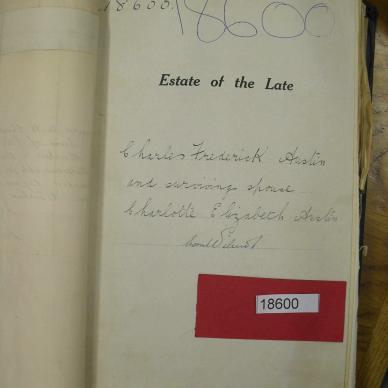 18600.
18600
Estate of the Late
Charles Frederick Austin
and surviving spouse
Charlotte Elizabeth Austin
18600